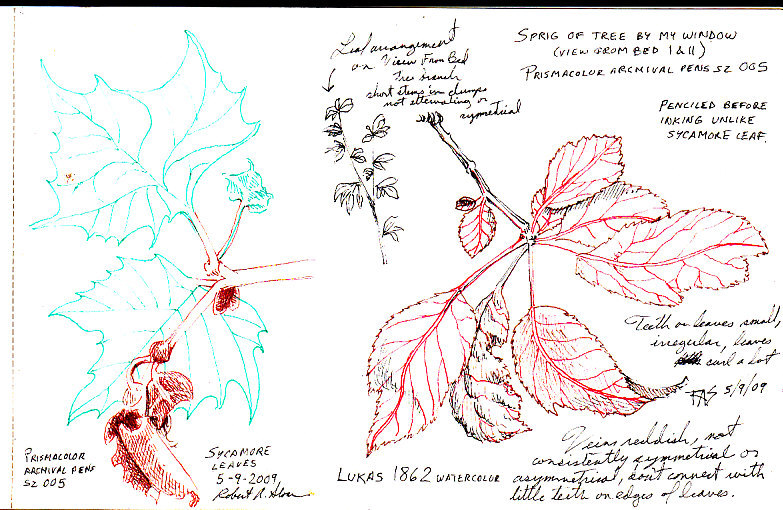 Leaf arrangement
on View From Bed
Tree branch
short stems in clumps
not alternating or
symmetrical
SPRIG OF TREE BY MY WINDOW
(VIEW FROM BED I & II)
PRISMACOLOR ARCHIVAL PENS SZ 005
PENCILED BEFORE
INKING UNLIKE
SYCAMORE LEAF.
Teeth on leaves small,
irregular, leaves
curl a lot
RAS 5/9/09
Veins reddish, not
consistently symmetrical or
asymmetrical, don't connect with
little teeth on edges of leaves.
LUKAS 1862 WATERCOLOR
PRISMACOLOR
ARCHIVAL PENS
SZ 005
SYCAMORE
LEAVES
5-9-2009
Robert A. Sloan